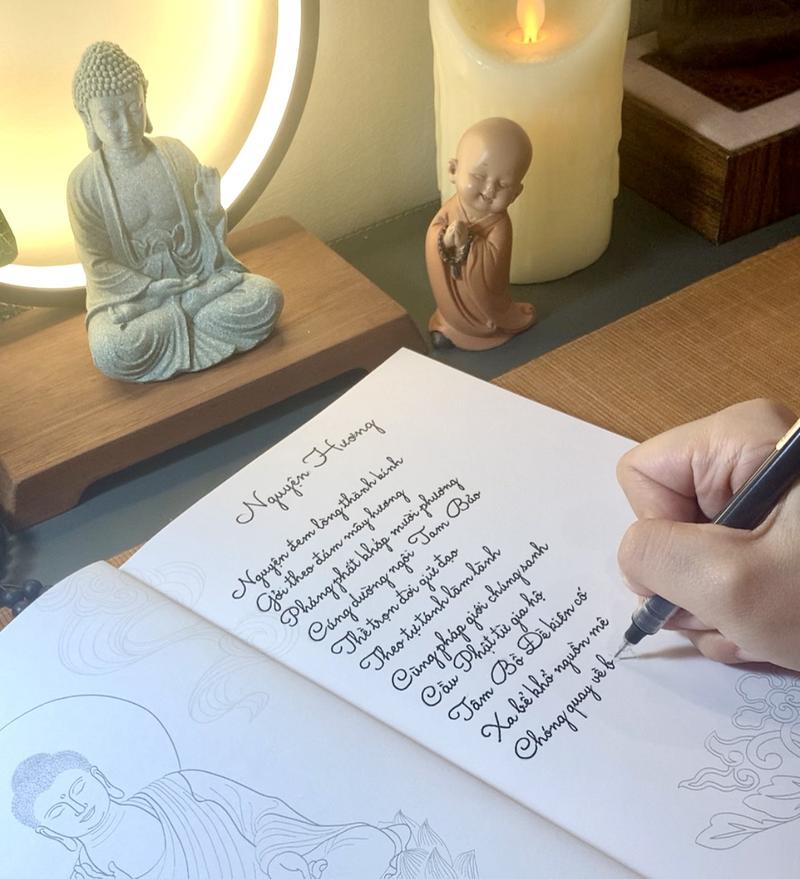 Nguyện Hương
Nguyện đem lòng thành kính
Gởi theo đám mây hương
Phảng phất khắp mười phương
Cúng dường ngôi Tam Bảo
Thề trọn đời giữ đạo
Theo tự tánh làm lành
Cùng pháp giới chúng sanh
Cầu Phật từ gia hộ
Tâm Bồ Đề kiên cố
Xa bể khổ nguồn mê
Chóng quay về b